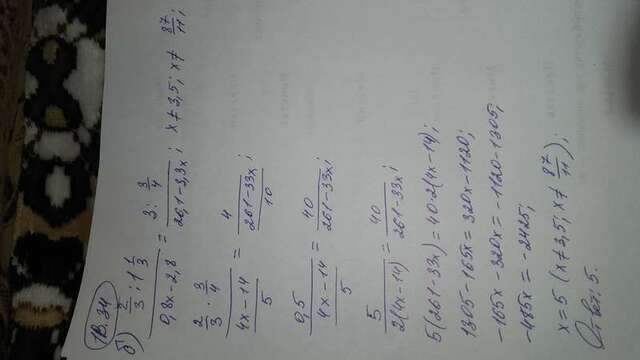 1В. 34
б) (2/3 : 1 1/3)/(0,8x-2,8) = (3 : 3/4)/(26,1-3,3x); x≠3,5; x≠ 87/11;
(2/3 · 3/4)/((4x-14)/5) = 4/((261-33x)/10);
0,5/((4x-14)/5) = 40/(261-33x);
5/(2(4x-14)) = 40/(261-33x);
5(261-33x)=40·2(4x-14);
1305-165x=320x-1120;
-165x-320x=-1120-1305;
-485x=-2425;
x=5 (x≠3,5; x≠ 87/11);
Ответ: 5.